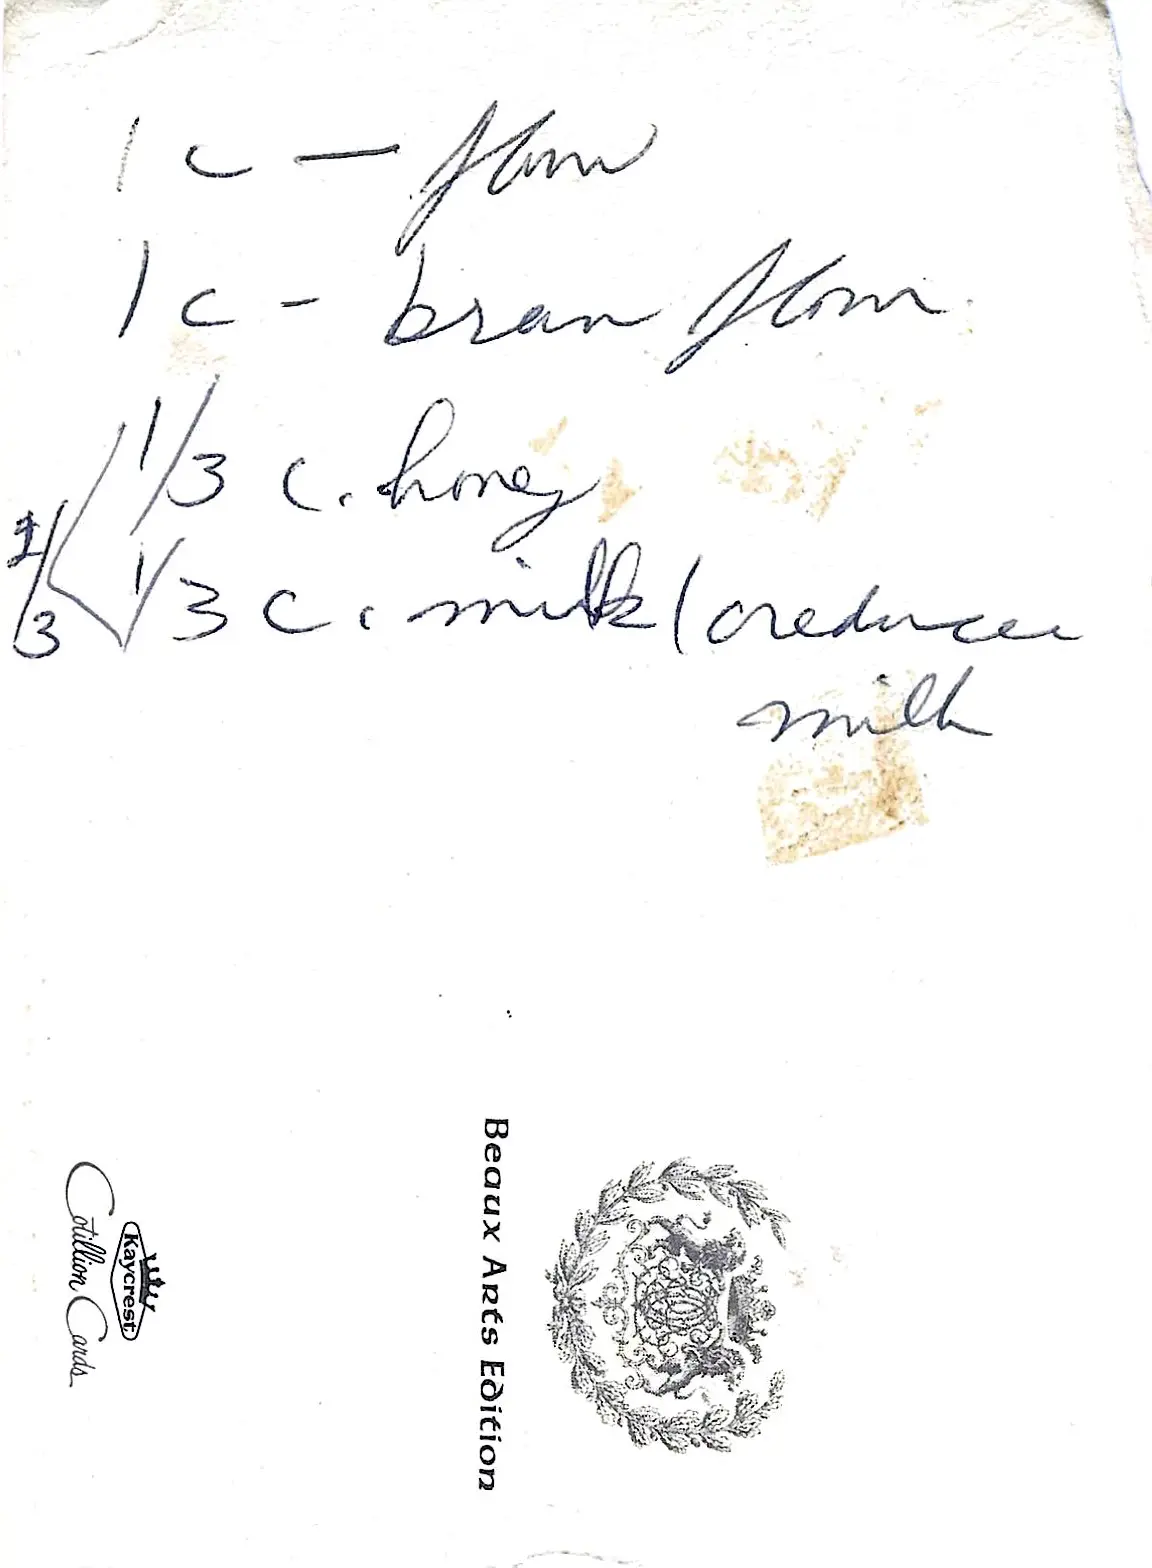 1 c — flour
1 c - bran flour
1/3 c. honey
2/3
1/3 c. milk (or reduce
milk
Beaux Arts Edition
Kaycrest
Cotillion Cards